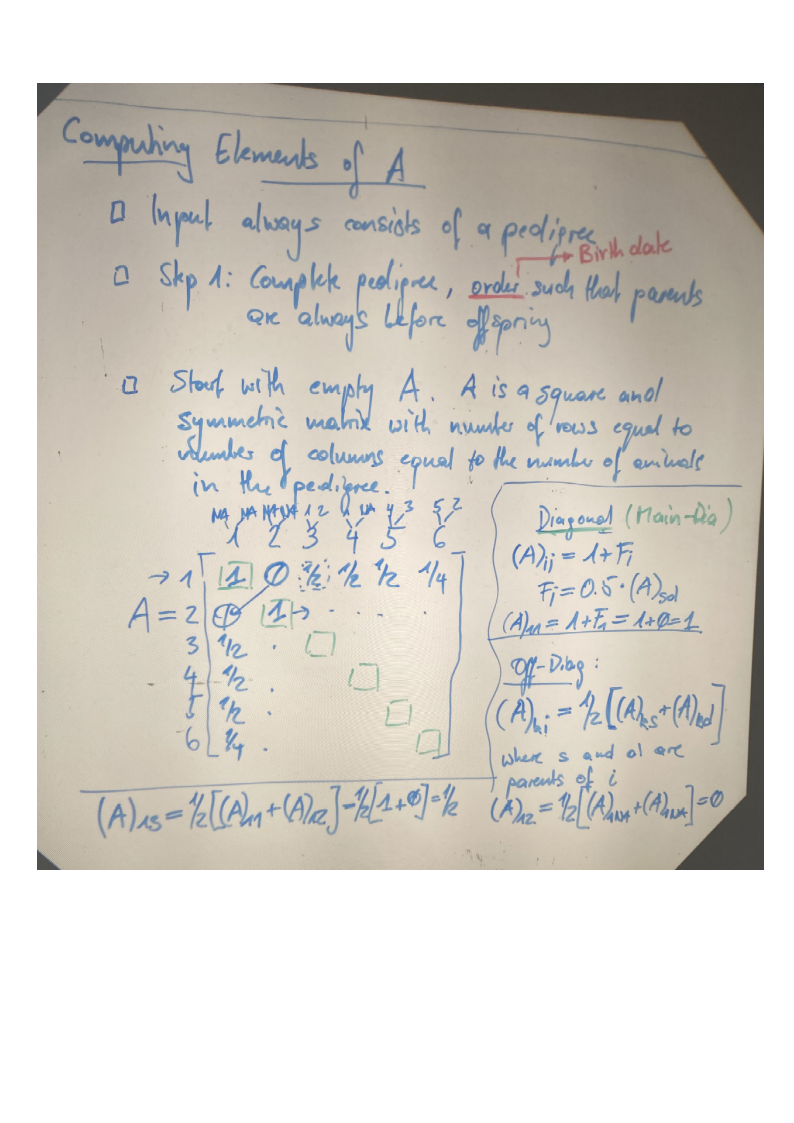 Computing Elements of A
□ Input always consists of a pedigree
→ Birthdate
□ Step 1: Complete pedigree, order such that parents
are always before offspring
□ Start with empty A. A is a square and
symmetric matrix with number of rows equal to
number of columns equal to the number of animals
in the pedigree.
NA NA NA NA 1 2 1 NA 4 3 5 2
1 2 3 4 5 6
→ 1 1 0 1/2 1/2 1/2 1/4
A = 2 0 1 → · · ·
3 1/2 ·
4 1/2 ·
5 1/2 ·
6 1/4 ·
Diagonal (Main-Dia)
(A)ii = 1 + Fi
Fi = 0.5 · (A)sd
(A)11 = 1 + F1 = 1 + 0 = 1
Off-Diag:
(A)ki = 1/2 [(A)ks + (A)kd]
where s and d are
parents of i
(A)12 = 1/2 [(A)1NA + (A)1NA] = 0
(A)13 = 1/2 [(A)11 + (A)12] = 1/2 [1 + 0] = 1/2